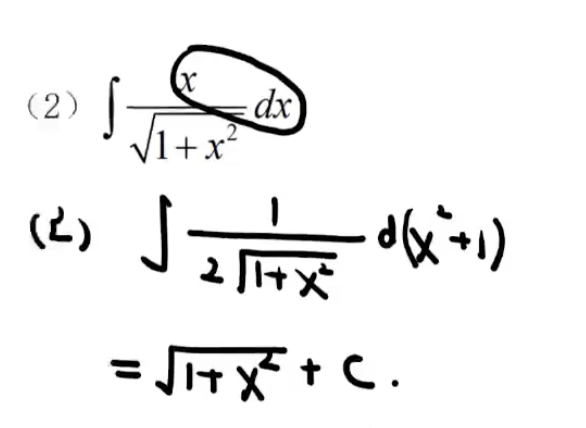 (2) ∫ x/√(1+x²) dx
(2) ∫ 1/(2√(1+x²)) d(x²+1)
= √(1+x²) + C.